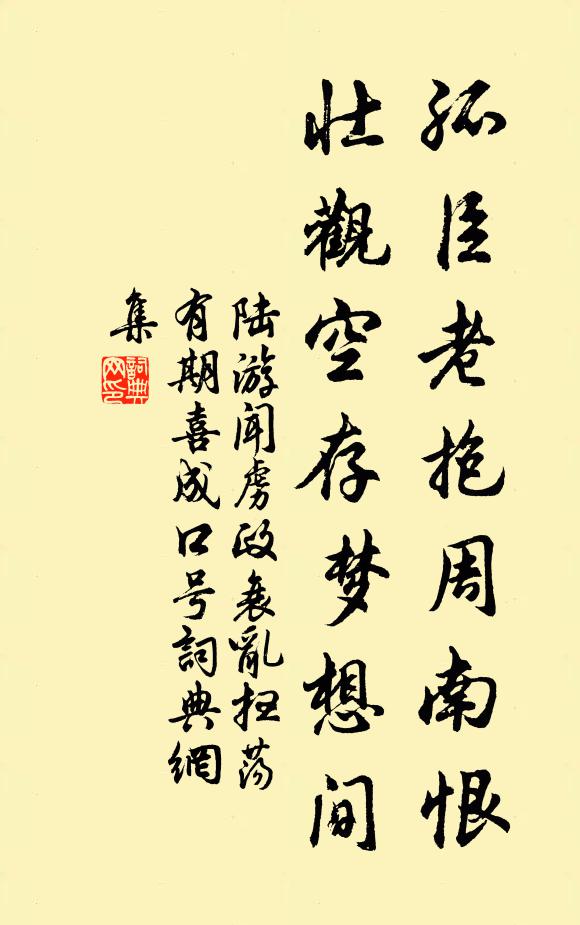 孤臣老抱周南恨
壮觀空存梦想间
陆游闻虏政衰亂扫荡
有期喜成口号詞典網
集
詞典网印